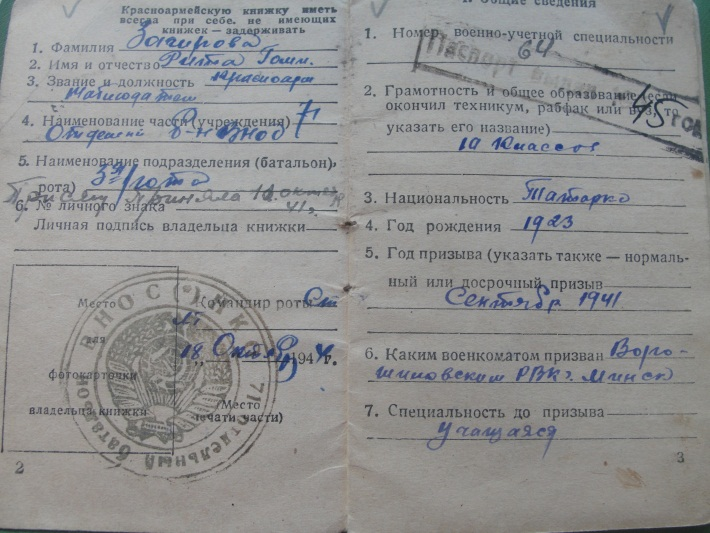 Красноармейскую книжку иметь
всегда при себе. не имеющих
книжек — задерживать
1. Фамилия Загирова
2. Имя и отчество Рита
3. Звание и должность Красноарм
Наблюдатель
4. Наименование части (учреждения)
Отдельный Б-н ВНОС
5. Наименование подразделения (батальон),
рота) 3я/рота
Присягу приняла
41г.
6. № личного знака
Личная подпись владельца книжки
Место
для
фотокарточки
владельца книжки
Командир роты Ст
18 Октября 194 г.
(Место
печати части)
71 отдельный батальон ВНОС НКО
2
I. Общие сведения
1. Номер военно-учетной специальности
64
Паспорт выдан
45 г.
2. Грамотность и общее образование (если
окончил техникум, рабфак или вуз, то
указать его название)
10 классов
3. Национальность Татарка
4. Год рождения 1923
5. Год призыва (указать также — нормаль-
ный или досрочный призыв
Сентябрь 1941
6. Каким военкоматом призван Воро-
шиловским РВК г. Минск
7. Специальность до призыва
Учащаяся
3